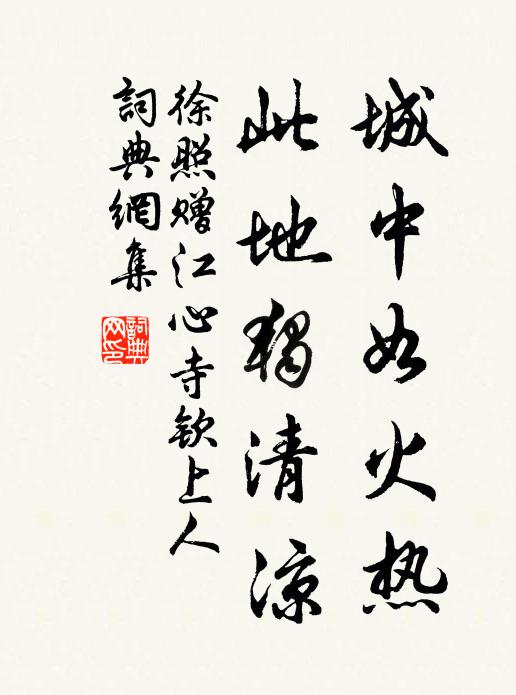 城中如火热
此地獨清凉
徐照赠江心寺欽上人
詞典網集
詞典
网印